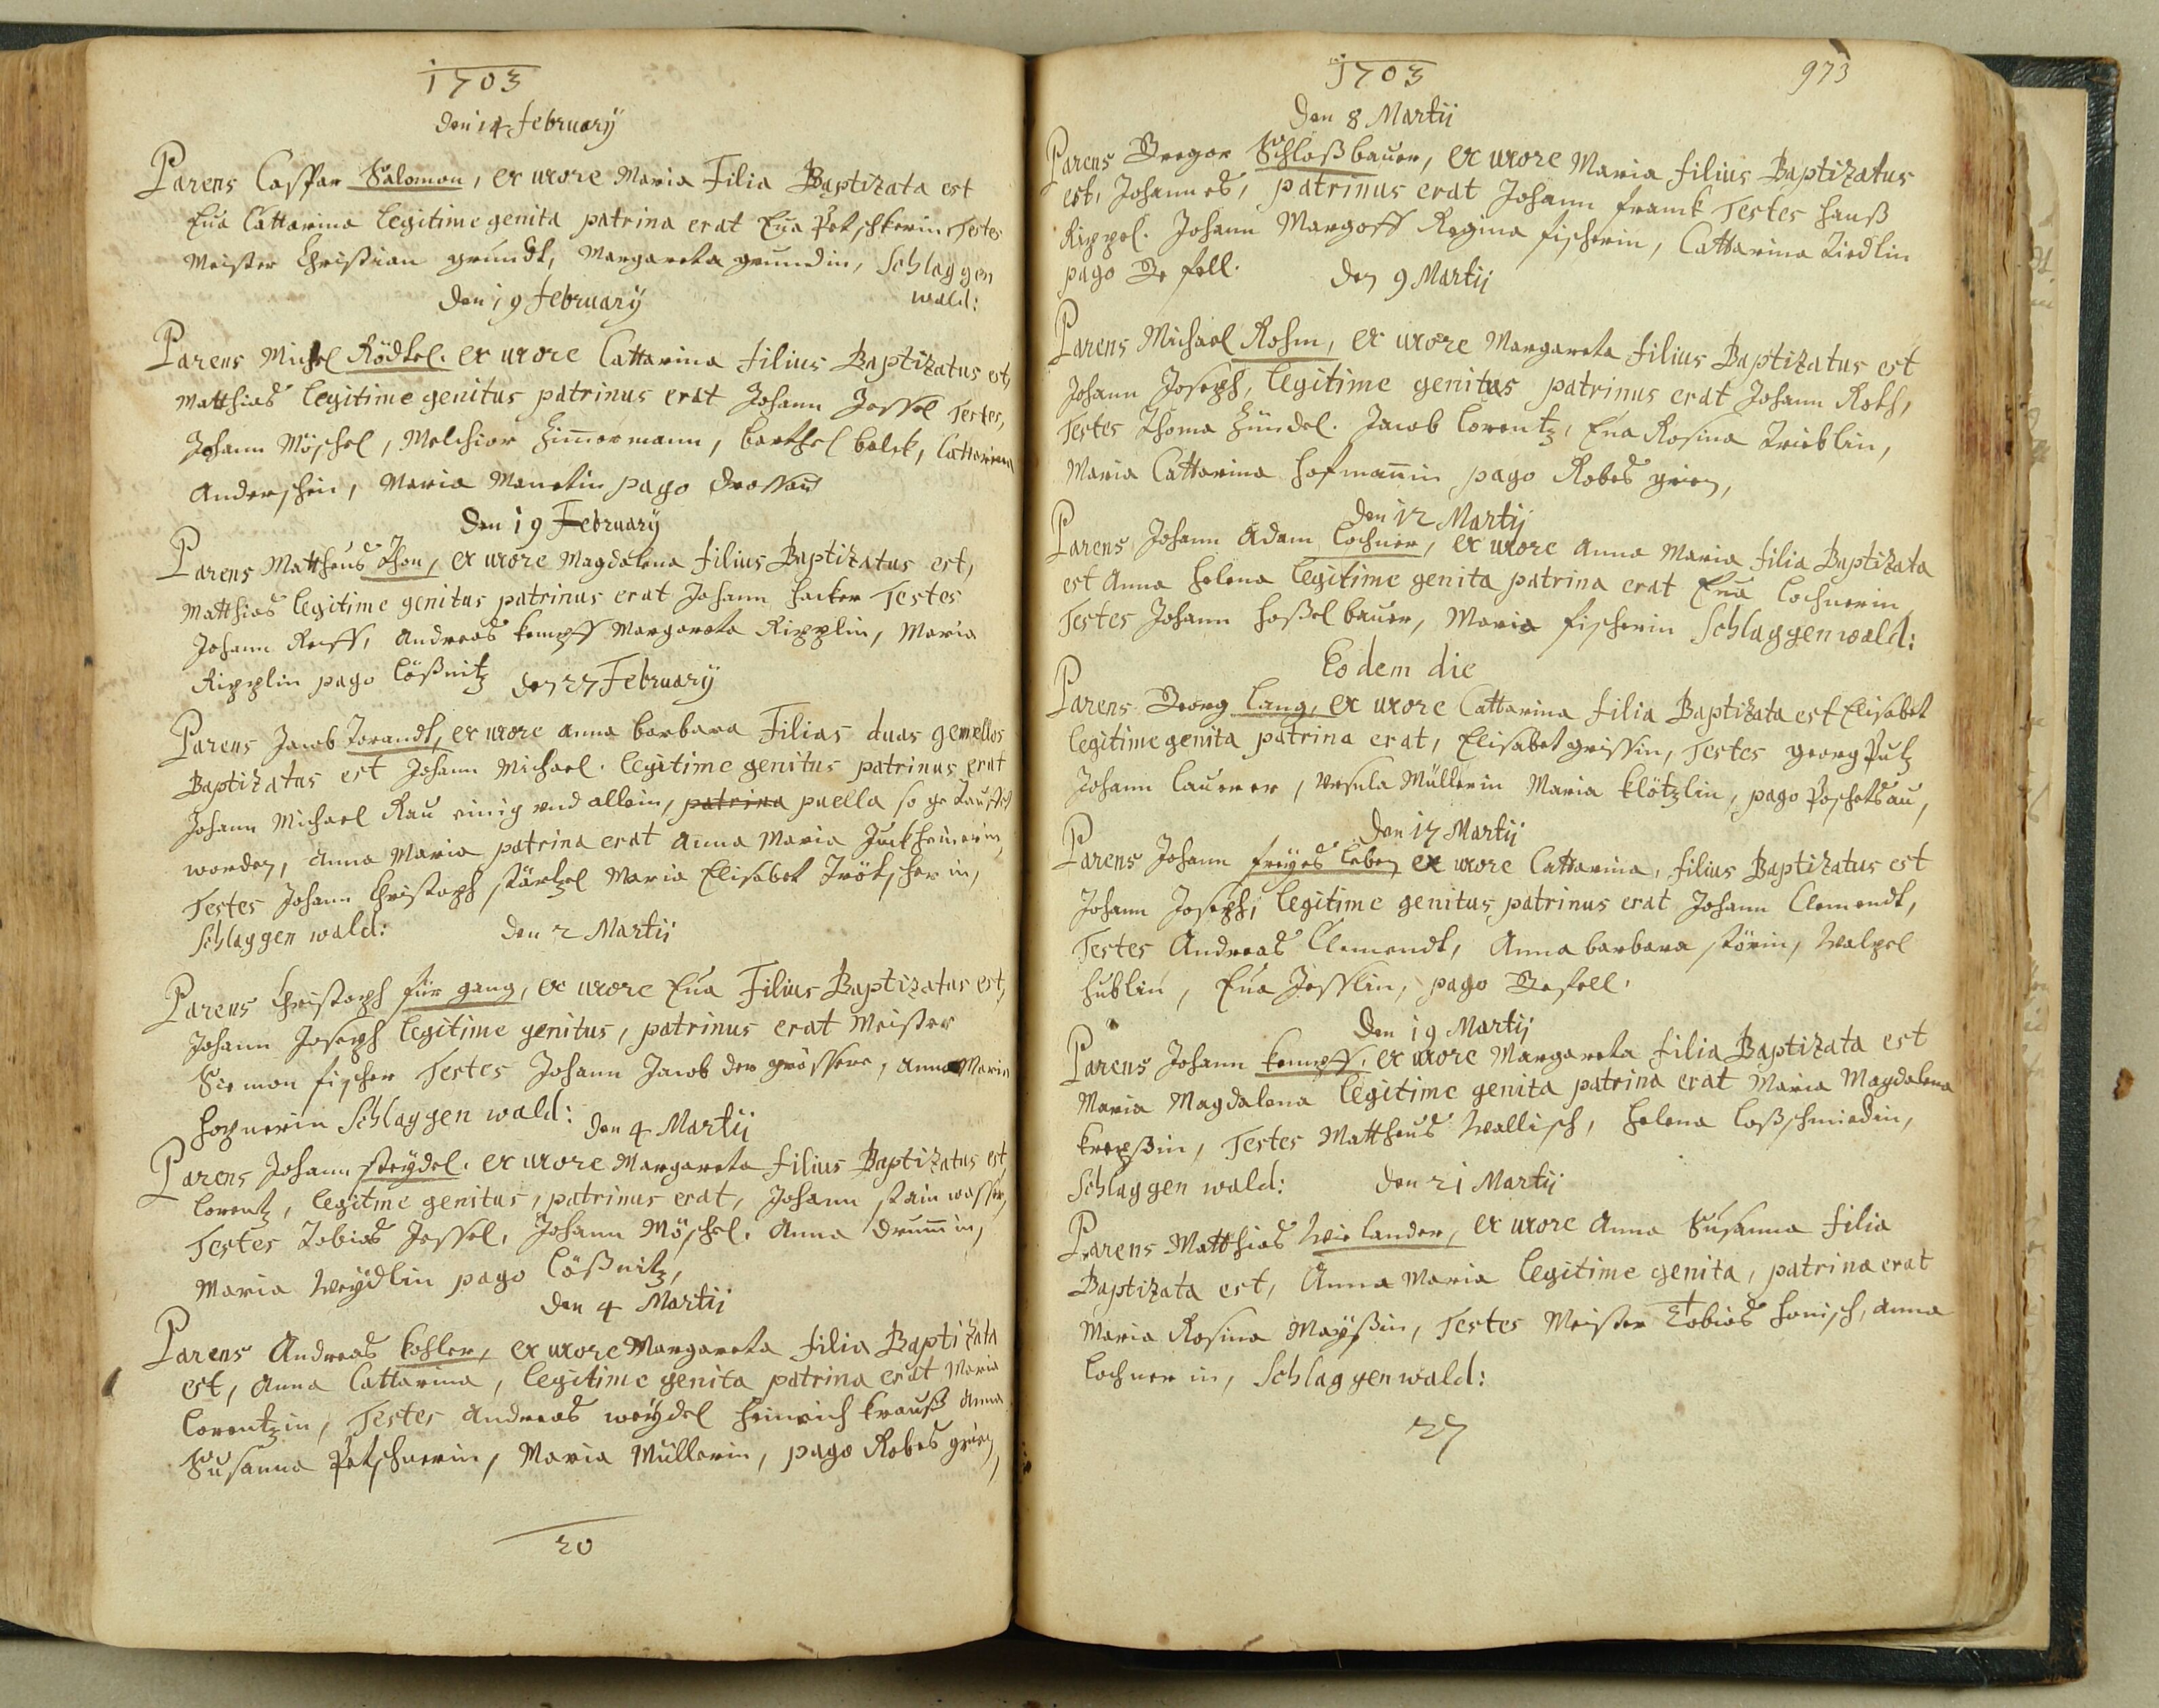 1703
Den 14 February
Parens Casspar Salomon, ex uxore Maria Filia Baptizata est
Eua Cattarina legitime genita patrina erat Eua Petschkerin Testes
Meister Christian grundt, Margareta grundin, Schlaggen
wald:
Den 19 February
Parens Michel Rödtel. ex uxore Cattarina filius Baptizatus est,
Matthias legitime genitus patrinus erat Johann Jessel Testes,
Johann Möschel, Melchior Zimmermann, barthel balck, Cattarina
Anderschin, Maria pago
Den 19 February
Parens Mattheus Thon, ex uxore Magdalena filius Baptizatus est,
Matthias legitime genitus patrinus erat Johann Hacker Testes
Johann Andreas kempff Margareta Ripplin, Maria
Ripplin pago Lößnitz den 27 February
Parens Jacob ex uxore Anna barbara Filias duas gemellos
Baptizatus est Johann Michael. legitime genitus patrinus erat
Johann Michael Rau einig vnd allein, patrina puella so getaufft
worden, Anna Maria patrina erat Anna Maria
Testes Johann Christoph stärtzel Maria Elisabet Trötscherin,
Schlaggen wald: Den 2 Martii
Parens Christoph für gang, ex uxore Eua Filius Baptizatus est,
Johann Joseph legitime genitus, patrinus erat Meister
Siemon fischer Testes Johann Jacob der grössere, Anna Maria
Schlaggen wald: Den 4 Martii
Parens Johann steydel. ex uxore Margareta filius Baptizatus est
Lorentz, legitme genitus, patrinus erat, Johann stain wasser,
Testes Tobias Jessel, Johann Möschel. Anna Drum̄in,
Maria Weydlin pago Lößnitz,
Den 4 Martii
Parens Andreas kohler, ex uxore Margareta filia Baptizata
est, Anna Cattarina, legitime genita patrina erat Maria
Lorentzin, Testes Andreas weydel Heinrich krauß Anna
Susanna Petschnerin, Maria Müllerin, pago Robes grien,
20
1703 973
Den 8 Martii
Parens Gregor Schloßbauer, ex uxore Maria filius Baptizatus
est, Johannes, patrinus erat Johann franck Testes Hanß
Rippel. Johann Margoff Regina fischerin, Cattarina Liedlin
pago Ge fell. Den 9 Martii
Parens Michael Rohm, ex uxore Margareta filius Baptizatus est
Johann Joseph, legitime genitus patrinus erat Johann Roth,
Testes Thoma Zündel. Jacob Lorentz, Eua Rosina Trieblin,
Maria Cattarina Hofman̄in pago Robes grien,
Den 12 Martii
Parens Johann Adam Lochner, ex uxore Anna Maria filia Baptizata
est Anna Helena legitime genita patrina erat Eua Lochnerin
Testes Johann Haßelbauer, Maria fischerin Schlaggenwald:
Eo dem die
Parens Georg Lang, ex uxore Cattarina filia Baptizata est Elisabet
legitime genita patrina erat, Elisabet grissin, Testes georg Putz
Johann Lauerer, Vrsula Müllerin Maria klötzlin, pago Poschetsau,
Den 17 Martii
Parens Johann freyes leben ex uxore Cattarina, filius Baptizatus est
Johann Joseph, legitime genitus patrinus erat Johann Clemendt,
Testes Andreas Clemendt, Anna barbara störin, Walpel
Hublin, Eua Jesslin, pago Gefell.
Den 19 Martii
Parens Johann kempff. ex uxore Margareta filia Baptizata est
Maria Magdalena legitime genita patrina erat Maria Magdalena
Testes Mattheus Wallisch, Helena Loßschmiedin,
Schlaggen wald: Den 21 Martii
Parens Matthias Wie lander, ex uxore Anna Susanna filia
Baptizata est, Anna Maria legitime genita, patrina erat
Maria Rosina Mayßin, Testes Meister Tobias Honisch, Anna
Lochner in, Schlaggenwald:
27